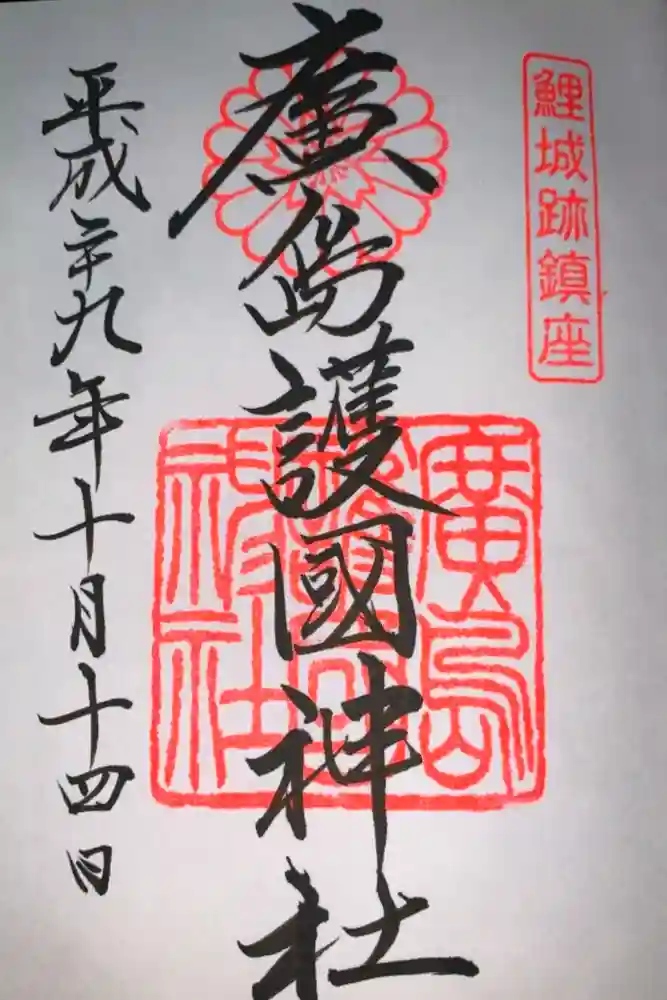 鯉城跡鎮座
廣島護國神社
廣島護國神社
平成二十九年十月十四日